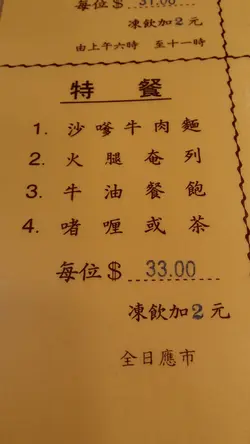 每位$ 31.00
凍飲加2元
由上午六時 至十一時
特 餐
1. 沙嗲牛肉麵
2. 火腿奄列
3. 牛油餐飽
4. 啫喱或茶
每位$ 33.00
凍飲加2元
全日應市